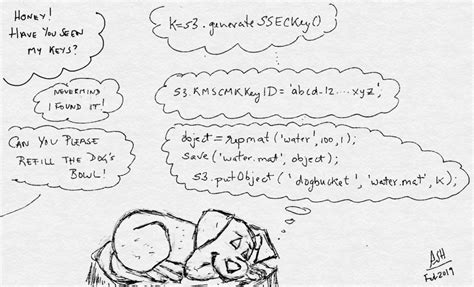 HONEY!
HAVE YOU SEEN
MY KEYS?
K=S3.generateSSECKey()
NEVERMIND
I FOUND IT!
S3.KMSCMKKeyID='abcd-12....xyz';
CAN YOU PLEASE
REFILL THE DOG'S
BOWL!
object=repmat('water',100,1);
save('water.mat', object);
S3.putObject('dogbucket','water.mat',K);
ASH
Feb2019